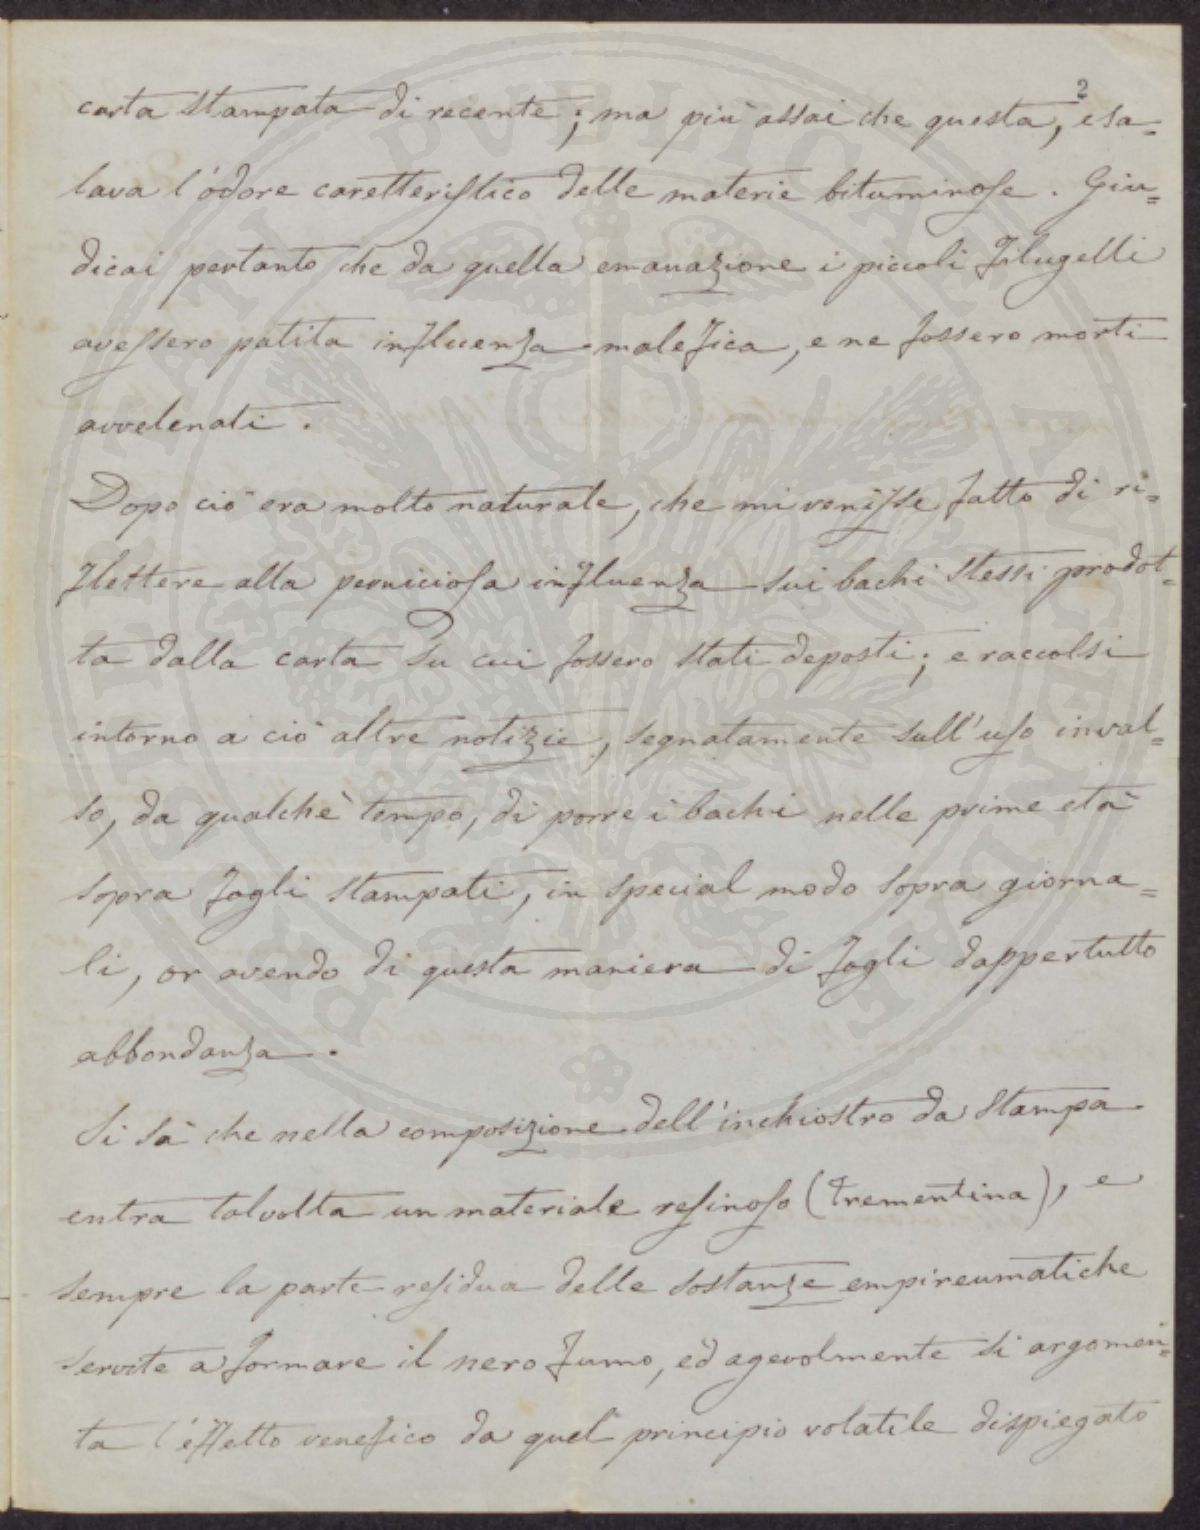 2
carta stampata di recente; ma più assai che questa, esa=
lava l'odore caretteristico delle materie bituminose. Giu=
dicai pertanto che da quella emanazione i piccoli filugelli
avessero patita influenza malefica, e ne fossero morti
avvelenati.
Dopo ciò era molto naturale, che mi venisse fatto di ri=
flettere alla perniciosa influenza sui bachi stessi prodot=
ta dalla carta su cui fossero stati deposti; e raccolsi
intorno a ciò altre notizie, segnatamente sull'uso inval=
so, da qualche tempo, di porre i bachi nelle prime età
sopra fogli stampati, in special modo sopra giorna=
li, or avendo di questa maniera di fogli dappertutto
abbondanza.
Si sà che nella composizione dell'inchiostro da stampa
entra talvolta un materiale resinoso (trementina), e
sempre la parte residua delle sostanze empireumatiche
servite a formare il nero fumo, ed agevolmente si argomen=
ta l'effetto venefico da quel principio volatile dispiegato